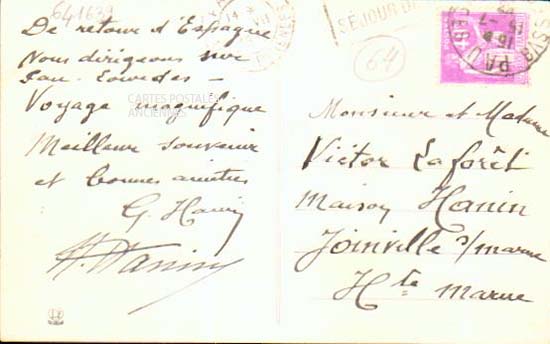 641639
De retour d'Espagne
Nous dirigeons sur
Pau. Lourdes –
Voyage magnifique
Meilleur souvenir
et bonnes amitiés
G. Hanin
H. Hanin
CARTES POSTALES
ANCIENNES
SÉJOUR
64
PAU
Monsieur et Madame
Victor Laforêt
Maison Hanin
Joinville s/marne
Hte Marne